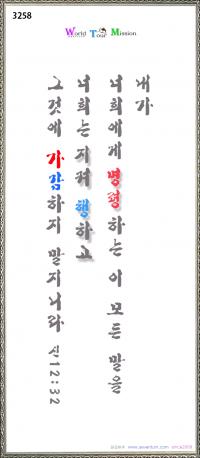 3258
World Tour Mission
내가
너희에게 명령하는 이 모든 말을
너희는 지켜 행하고
그것에 가감하지 말지니라 신12:32